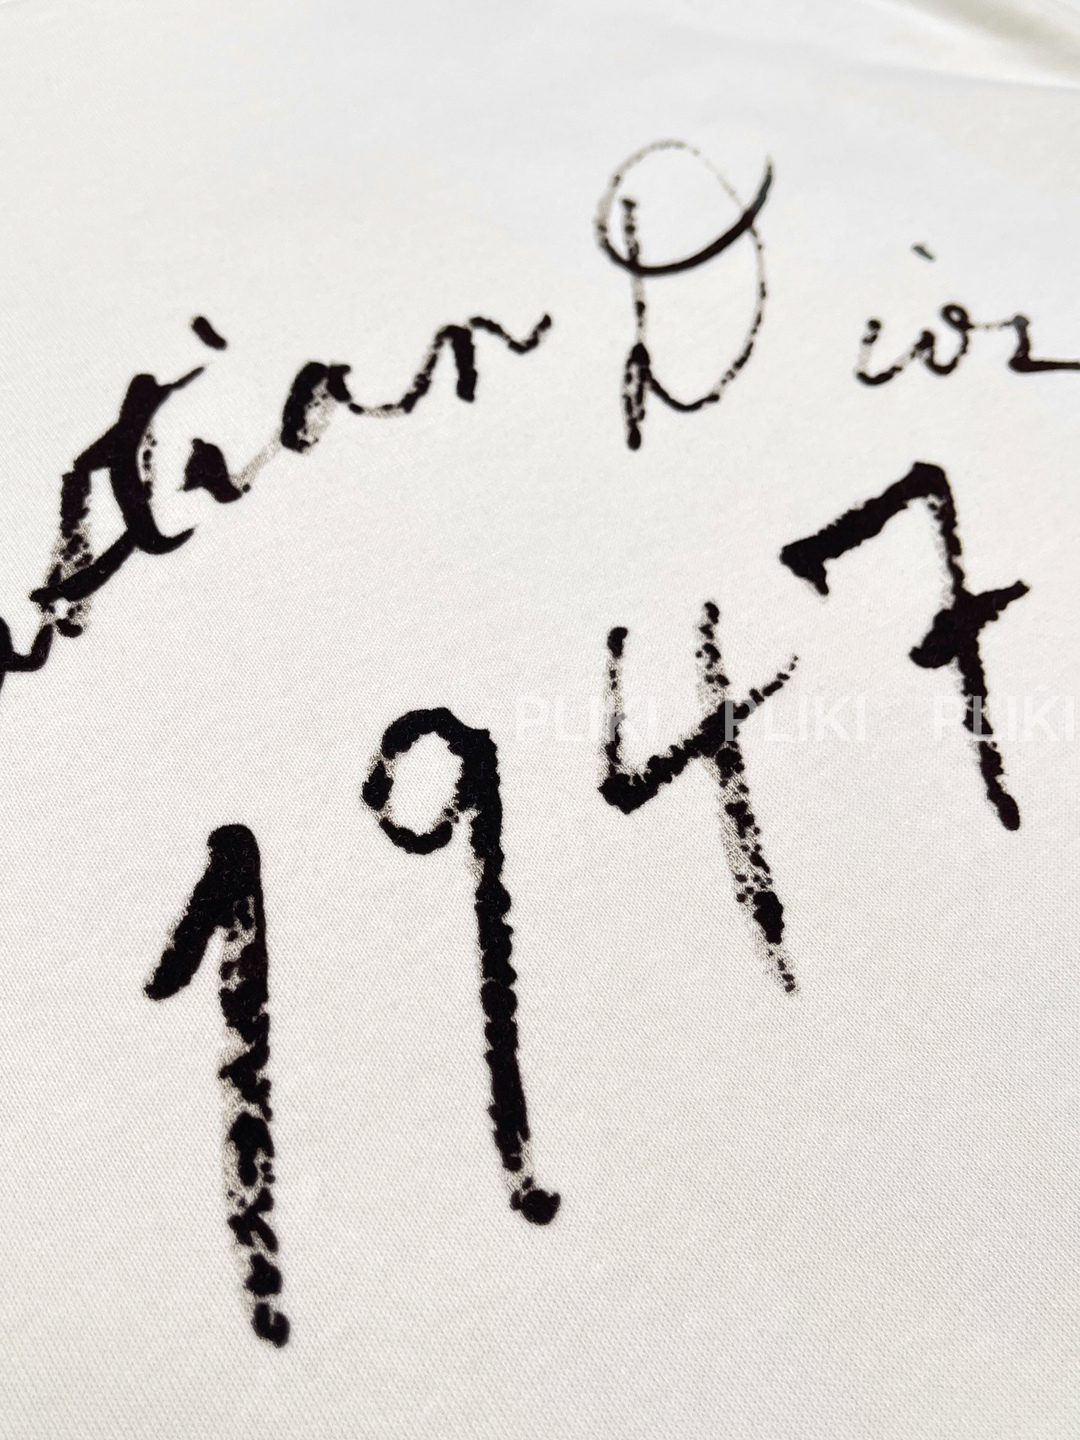 tian Dior
1947
PLIKI PLIKI PLIKI